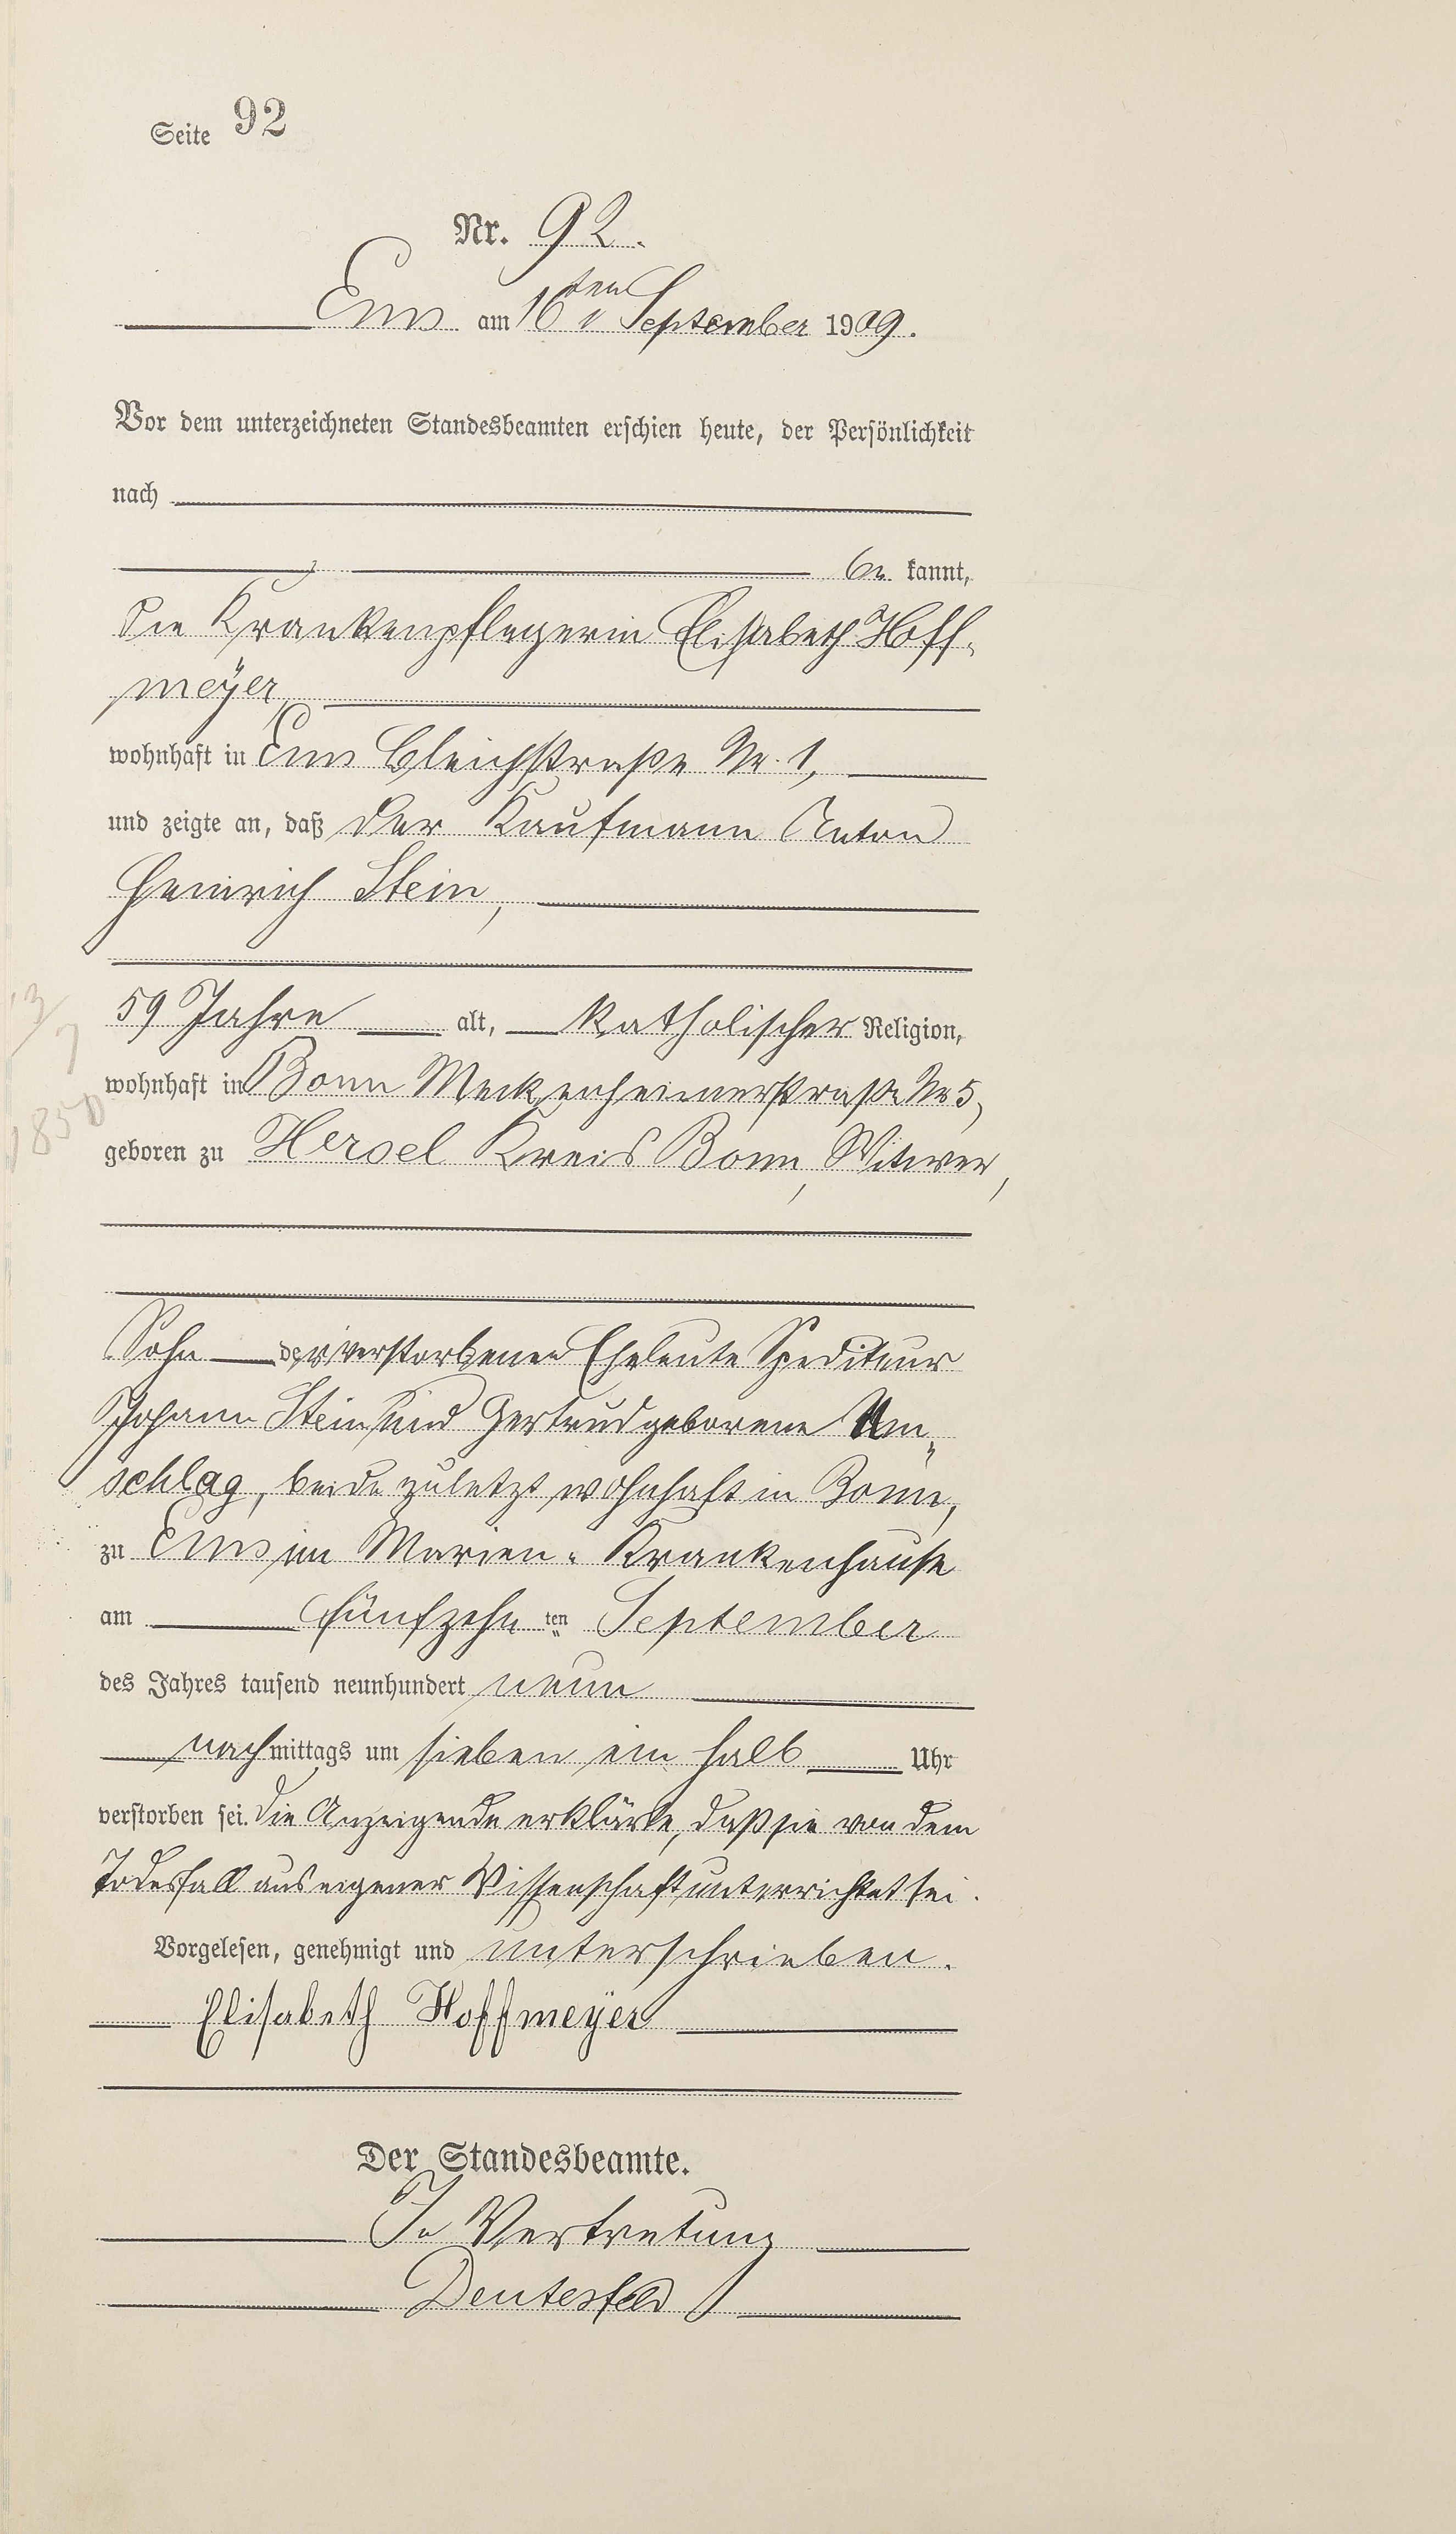 Seite 92
Nr. 92.
Ems am 16ten September 1909.
Vor dem unterzeichneten Standesbeamten erschien heute, der Persönlichkeit
nach
be kannt,
die Krankenpflegerin Elisabeth Hoff-
meÿer,
wohnhaft in Ems Bleichstraße Nr. 1,
und zeigte an, daß der Kaufmann Anton
Heinrich Stein,
59 Jahre alt, katholischer Religion,
13/7 1850
wohnhaft in Bonn Meckenheimerstraße Nr 5,
geboren zu Hersel Kreis Bonn, Witwer,
Sohn der verstorbenen Eheleute Spediteur
Johann Stein und Gertrud geborene Um„
schlag, beide zuletzt wohnhaft in Bonn,
zu Ems im Marien-Krankenhause
am fünfzehn ten September
des Jahres tausend neunhundert neun
nachmittags um sieben ein halb Uhr
verstorben sei. Die Anzeigende erklärte, daß sie von dem
Todesfall aus eigener Wissenschaft unterrichtet sei.
Vorgelesen, genehmigt und unterschrieben.
Elisabeth Hoffmeÿer
Der Standesbeamte.
In Vertretung
Deutesfeld